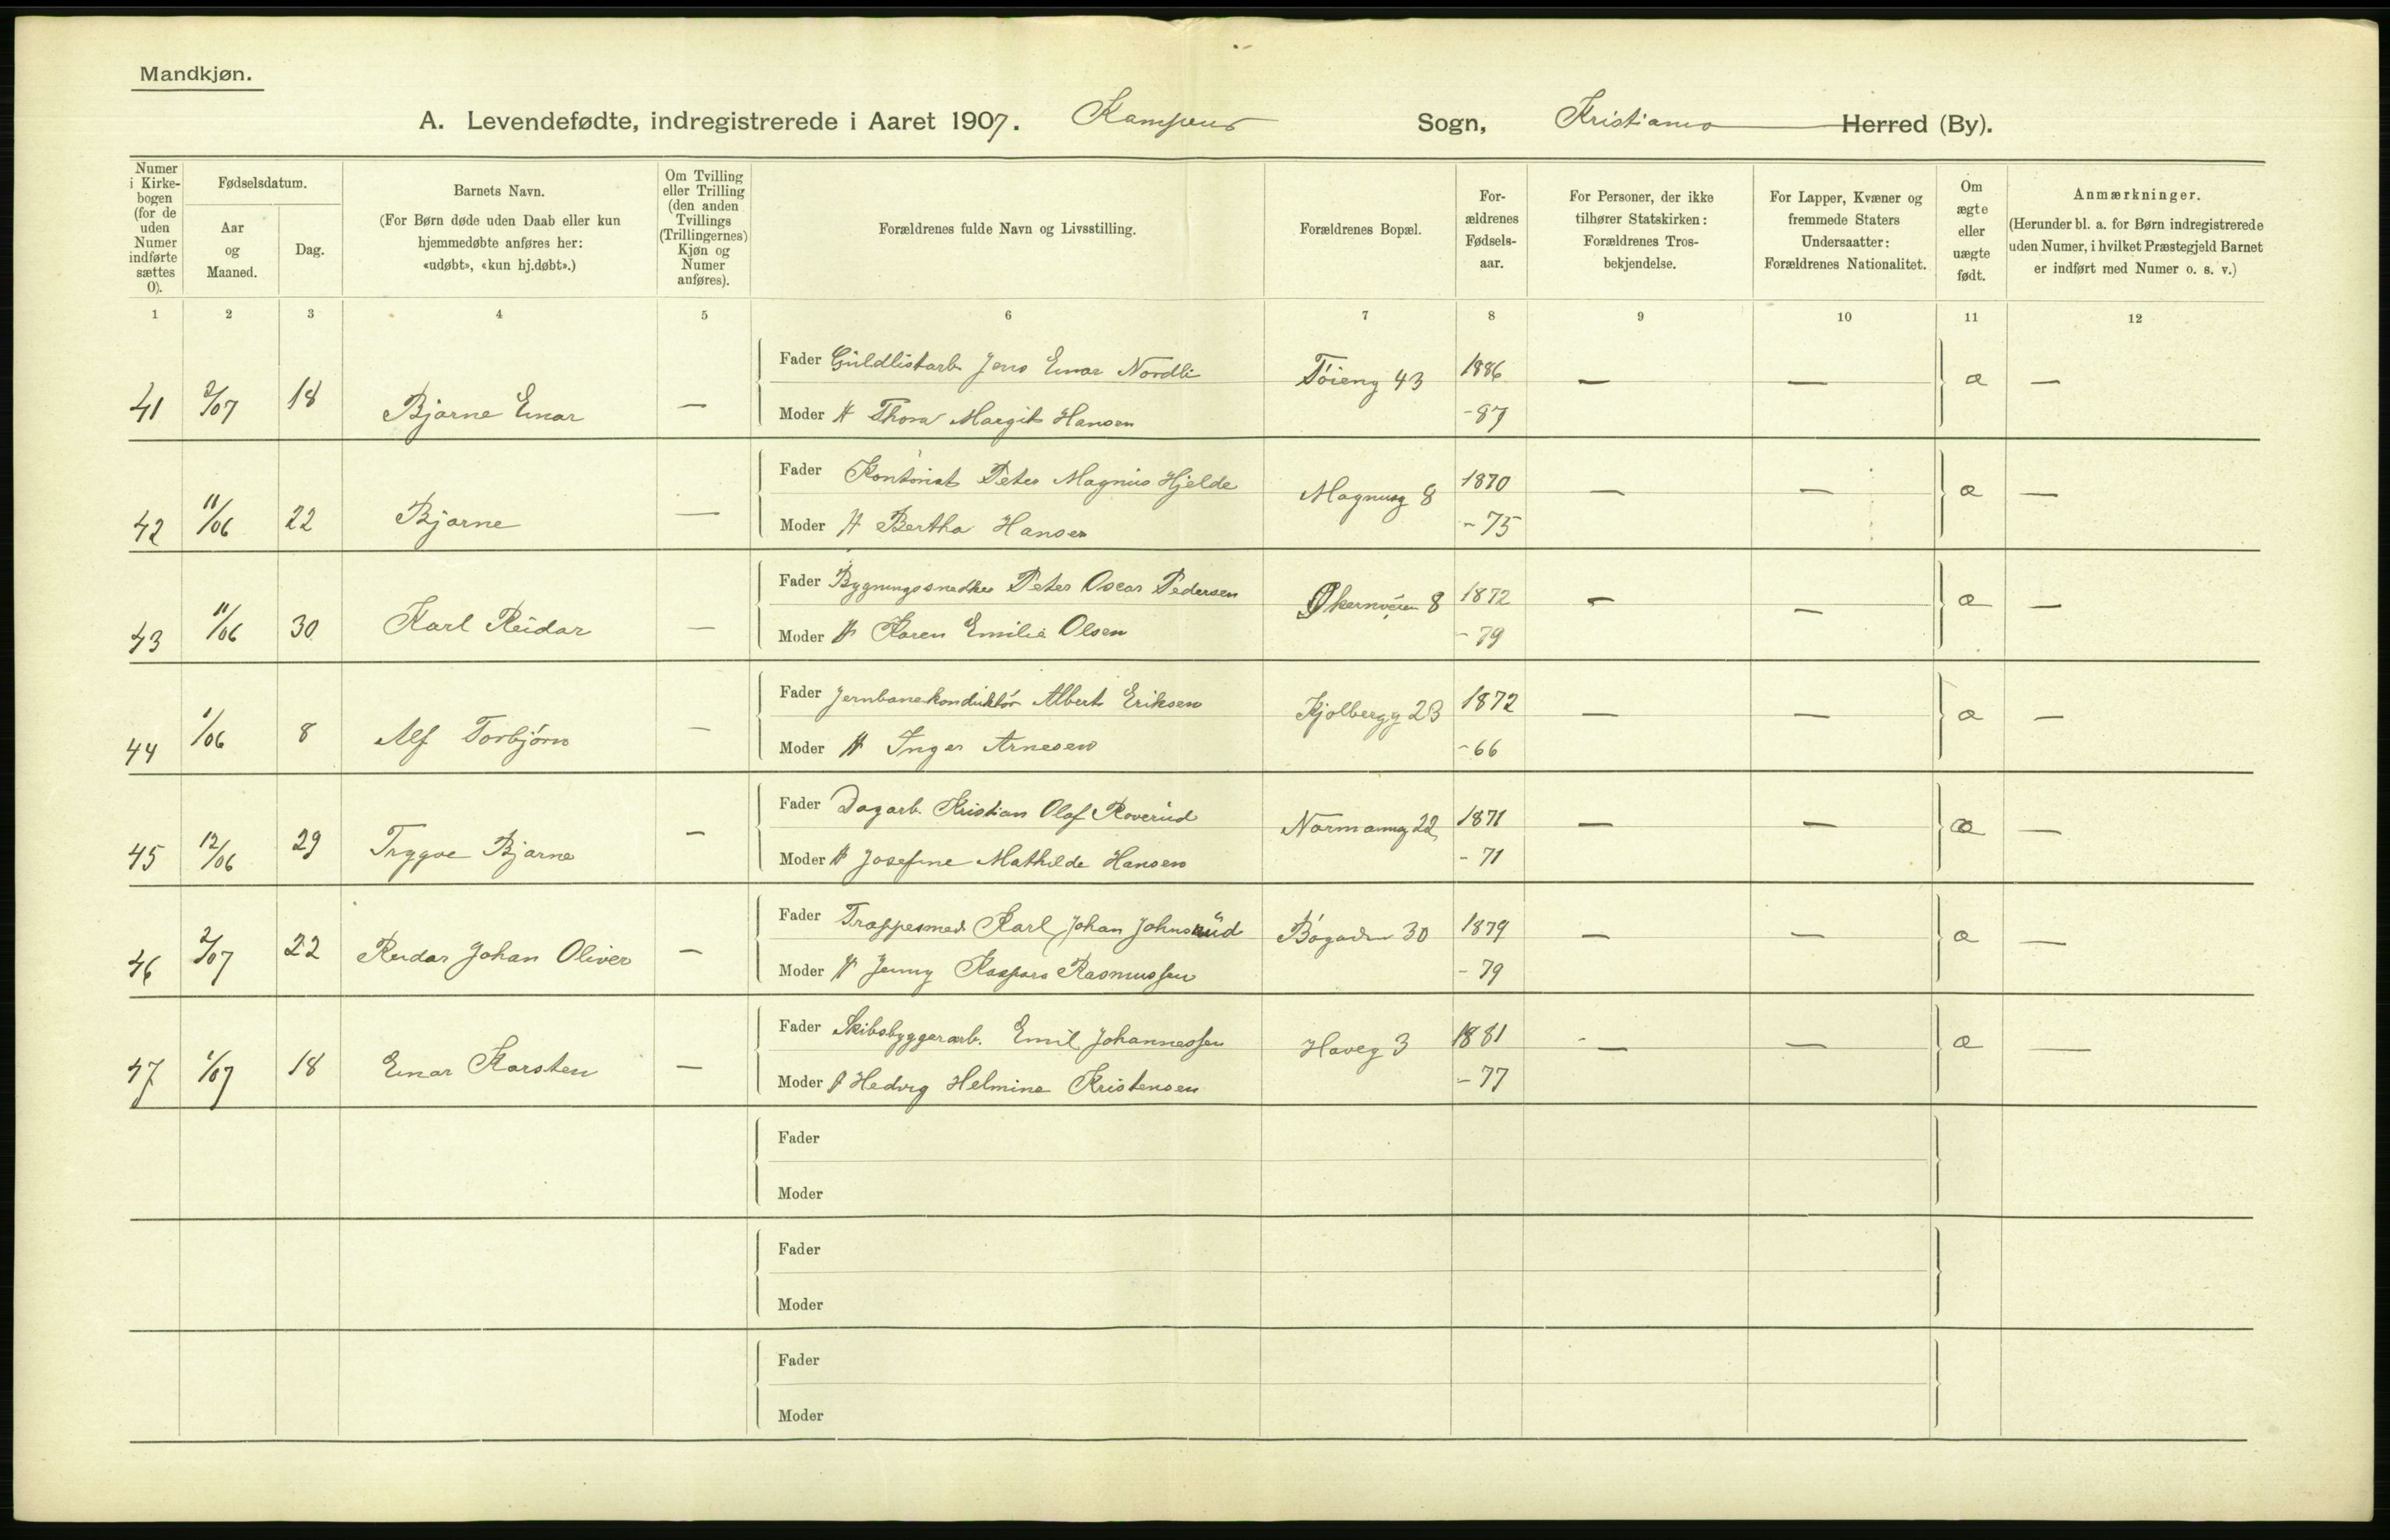 Mandkjøn.
A. Levendefødte, indregistrerede i Aaret 1907. Kampens Sogn, Kristiania Herred (By).
Numer i Kirkebogen (for de uden Numer indførte sættes 0).
Fødselsdatum.
Aar og Maaned.
Dag.
Barnets Navn.
(For Børn døde uden Daab eller kun hjemmedøbte anføres her: «udøbt», «kun hj.døbt».)
Om Tvilling eller Trilling (den anden Tvillings (Trillingernes) Kjøn og Numer anføres).
Forældrenes fulde Navn og Livsstilling.
Forældrenes Bopæl.
For-ældrenes Fødsels-aar.
For Personer, der ikke tilhører Statskirken: Forældrenes Tros-bekjendelse.
For Lapper, Kvæner og fremmede Staters Undersaatter: Forældrenes Nationalitet.
Om ægte eller uægte født.
Anmærkninger.
(Herunder bl. a. for Børn indregistrerede uden Numer, i hvilket Præstegjeld Barnet er indført med Numer o. s. v.)
1 2 3 4 5 6 7 8 9 10 11 12
Fader Guldlistarb. Jens Einar Nordli Tøieng 43 1886 — — æ —
41 2/07 18 Bjarne Einar — Moder H Thora Margit Hansen - 87
Fader Kontorist Peter Magnus Hjelde Magnusg 8 1870 — — æ —
42 11/06 22 Bjarne — Moder H Bertha Hansen - 75
Fader Bygningssnedker Peter Oscar Pedersen Økernveien 8 1872 — — æ —
43 11/06 30 Karl Reidar — Moder H Karen Emilie Olsen - 79
Fader Jernbanekonduktør Albert Eriksen Kjølbergg 23 1872 — — æ —
44 1/06 8 Alf Torbjørn — Moder H Inger Arnesen - 66
Fader Dagarb. Kristian Olaf Roverud Normanng 22 1871 — — æ —
45 12/06 29 Trygve Bjarne — Moder H Josefine Mathilde Hansen - 71
Fader Trappesmed Karl Johan Johnsrud Bøgaden 30 1879 — — æ —
46 2/07 22 Reidar Johan Oliver — Moder H Jenny Kaspara Rasmussen - 79
Fader Skibsbyggerarb. Emil Johannessen Haveg 3 1881 — — æ —
47 1/07 18 Einar Karsten — Moder H Hedvig Helmine Kristensen - 77
Fader
Moder
Fader
Moder
Fader
Moder